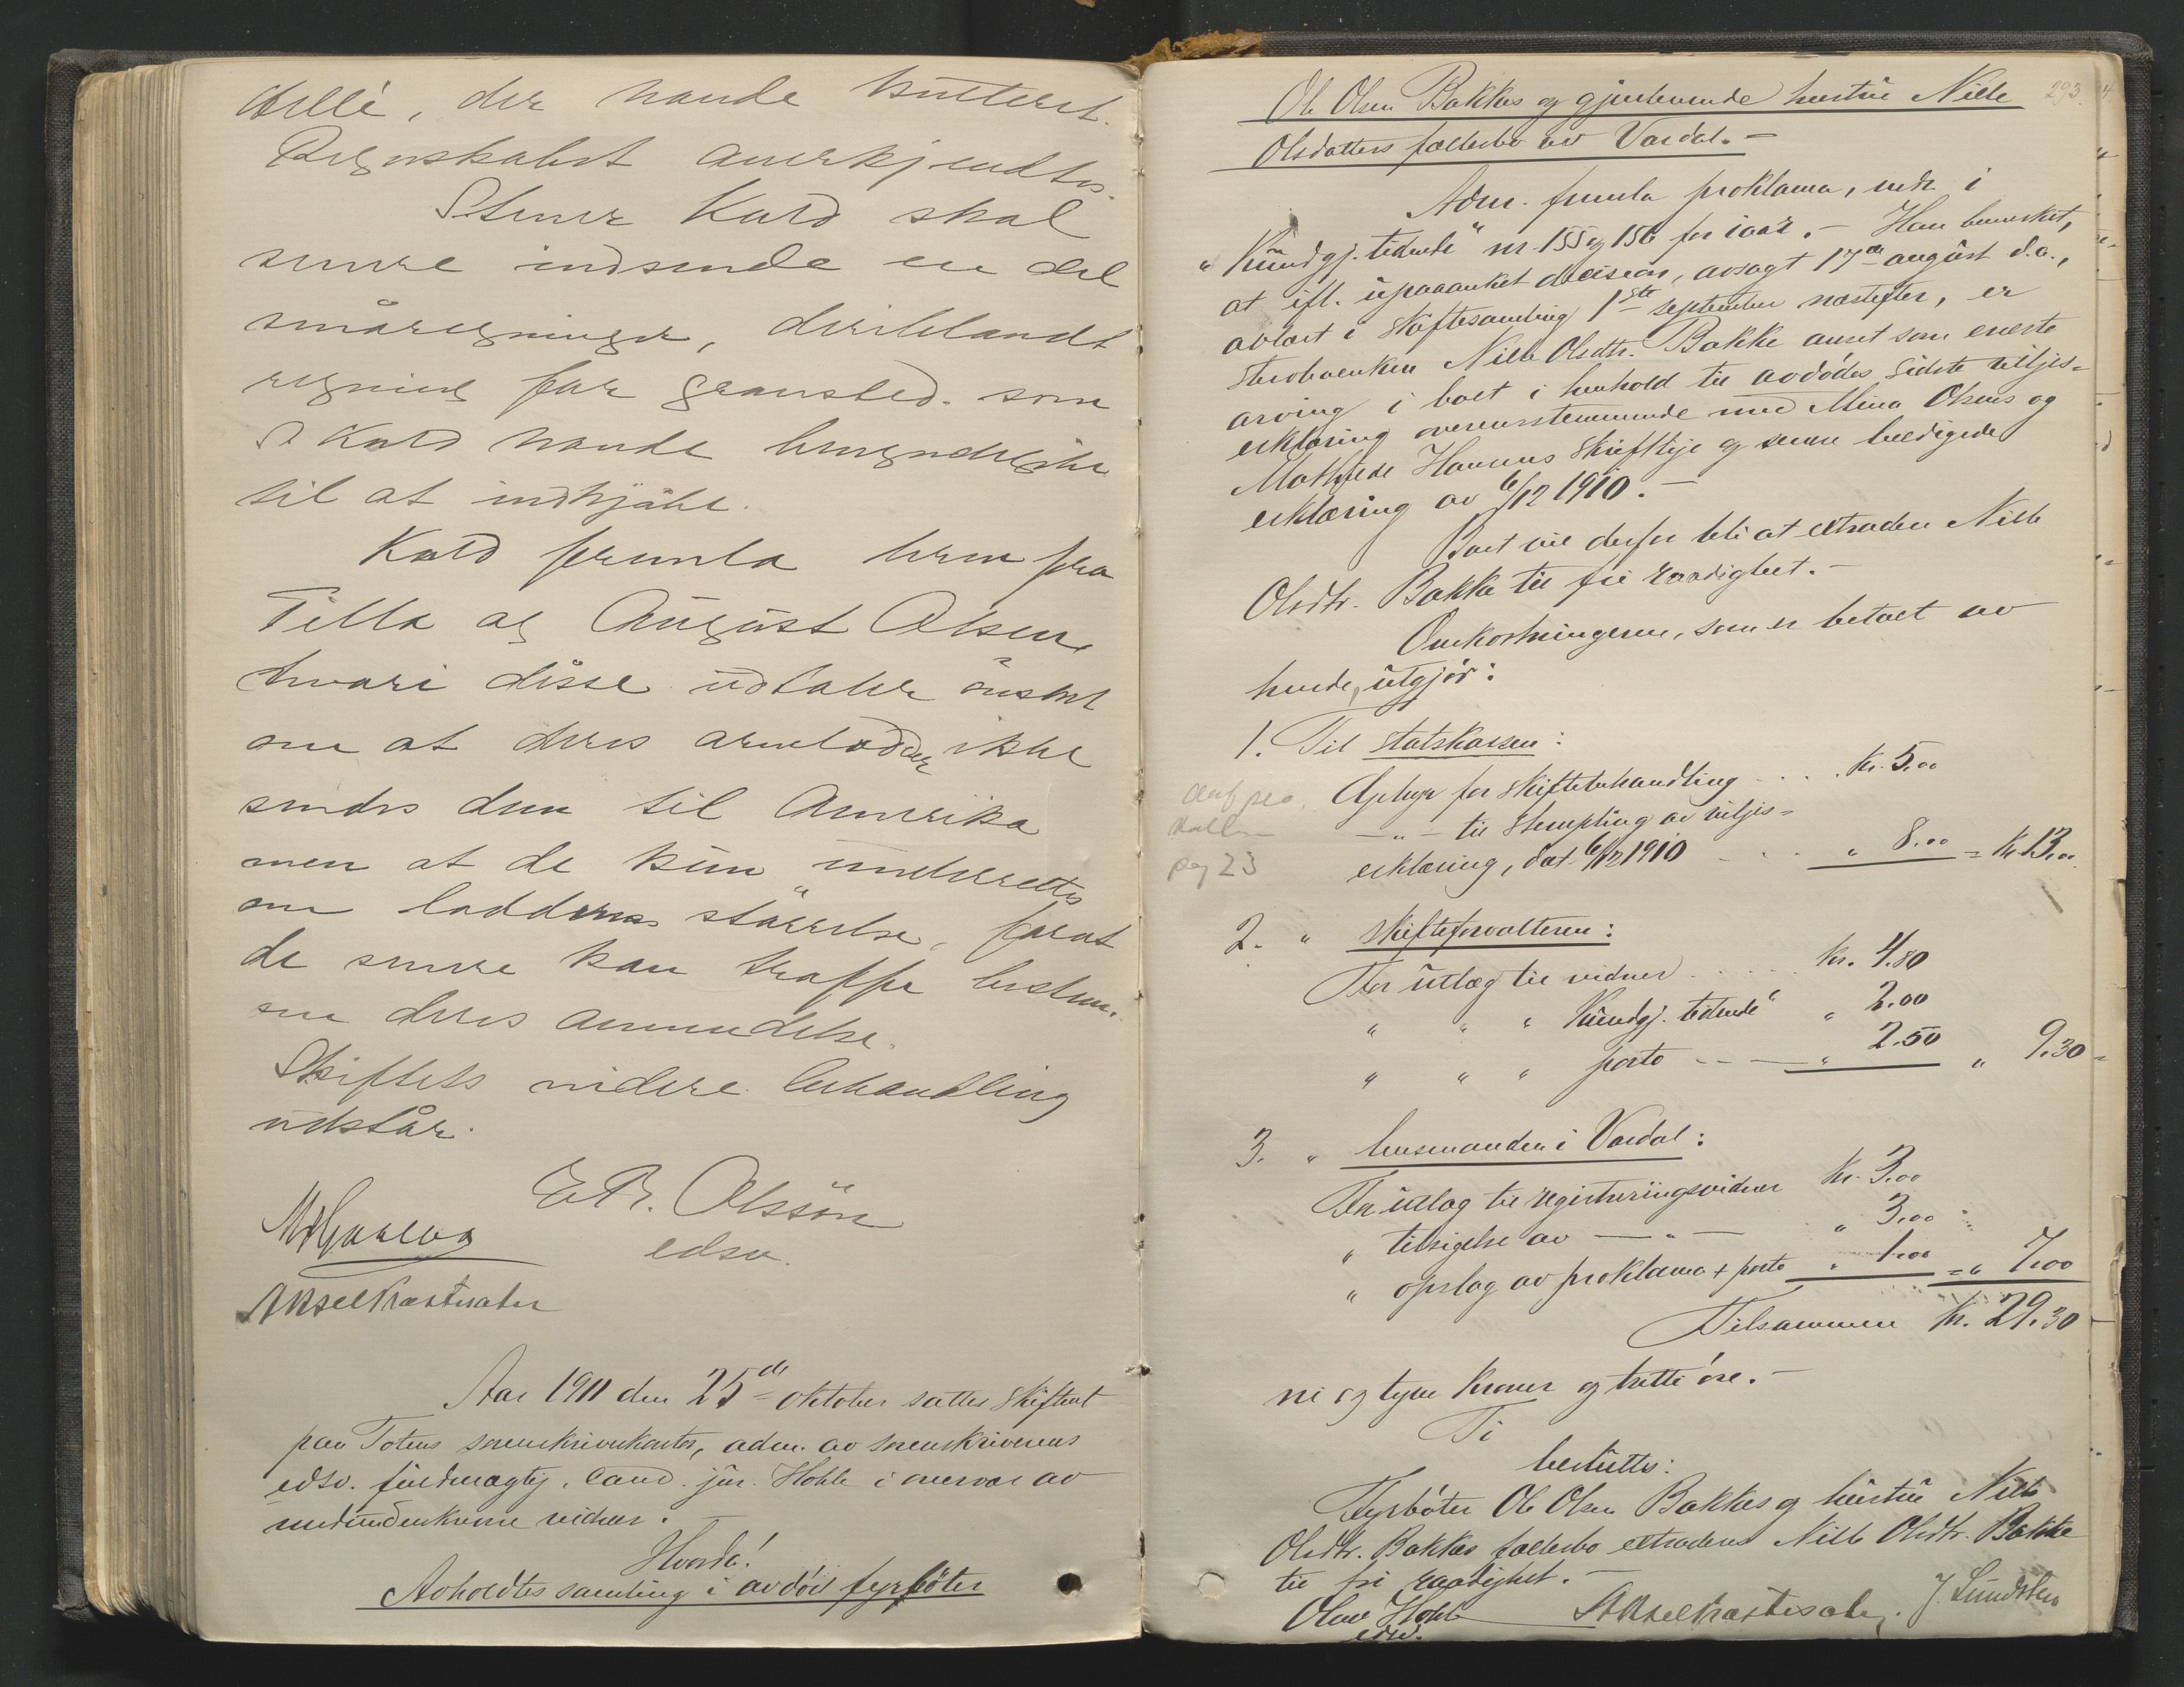 der havde kvitteret.
Regnskabet anerkjendtes.
Stener Kold skal
senere indsende en del
småregninger, deriblandt
regning for gravsted som
St Kold havde bemyndigelse
til at indkjøbe.
Kold fremla brev fra
Tilla og August Olsen
hvori disse udtaler ønsket
om at deres arvelodder ikke
sendes dem til Amerika
men at de kun underrettes
om loddernes størrelse, forat
de senere kan træffe bestem.
om deres anvendelse.
Skiftets videre behandling
udstår.
E. R. Olssøn
edsv.
Aksel Kastesaten
Aar 1911 den 25de oktober sattes skifteret
paa Totens sorenskriverkontor, adm. av sorenskriverens
edsv. fuldmægtig, cand. jur. Hohle i overvær av
medunderskrevne vidner. –
Hvorda!
Avholdtes samling i avdød fyrbøter
293.
Ole Olsen Bakkes og gjenlevende hustru Nille
Olsdatters fællesbo av Vardal. –
Adm. fremla proklama, indr. i
"Kundgj. tidende" nr. 155 og 156 for iaar. – Han bemerket,
at ifl. upaaanket decision, avsagt 17de august d.a.,
avlæst i skiftesamling 1ste september næstefter, er
Nille Olsdtr. Bakke anset som eneste
arving i boet i henhold til avdødes sidste viljes-
erklæring overensstemmende med Mina Olsens og
Mathilde Hansens skriftlige og senere beedigede
erklæring av 6/12 1910. –
Boet vil derfor bli at extradere Nille
Olsdtr. Bakke til fri raadighet. –
Omkostningerne, som er betalt av
hende, utgjør:
1. Til statskassen:
Gebyr for skiftebehandling . . . Kr. 5.00
–"– til stempling av viljes-
erklæring, dat. 6/12 1910 . . . " 8.00 = Kr. 13.00
pag 23
2. " skifteforvalteren:
For utlæg til vidner . . . . . Kr. 4.80
" " " "Kundgj. tidende" " 2.00
" " " porto - - - " 2.50 " 9.30 =
3. " lensmanden i Vardal:
For utlæg til registreringsvidner Kr. 3.00
" tilsigelse av –"– " 3.00
" opslag av proklama + porto " 1.00 = " 7.00
Tilsammen Kr. 29.30
ni og tyve kroner og trette øre. –
Ti
besluttes:
Fyrbøter Ole Olsen Bakkes og hustru Nille
Olsdtr. Bakkes fællesbo extraderes Nille Olsdtr. Bakke
til fri raadighet. –
Olav Hohle Aksel Kastesaten. J. Lundsten
edsv.